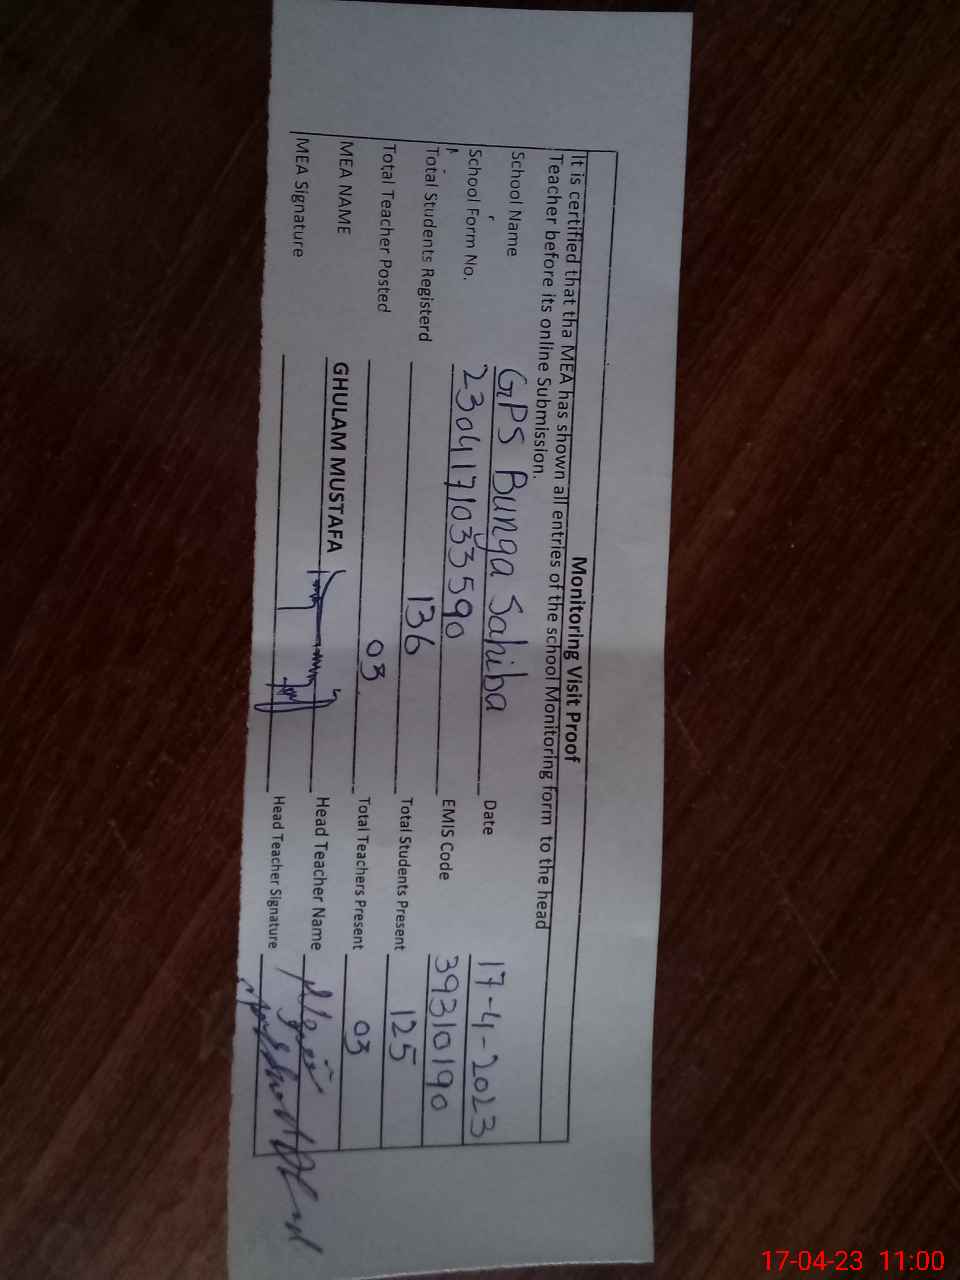 Monitoring Visit Proof
It is certified that tha MEA has shown all entries of the school Monitoring form to the head
Teacher before its online Submission.
School Name GPS Bunga Sahiba Date 17-4-2023
School Form No. 2304171033590 EMIS Code 39310190
Total Students Registerd 136 Total Students Present 125
Total Teacher Posted 03 Total Teachers Present 03
MEA NAME GHULAM MUSTAFA Head Teacher Name
MEA Signature Head Teacher Signature
17-04-23 11:00